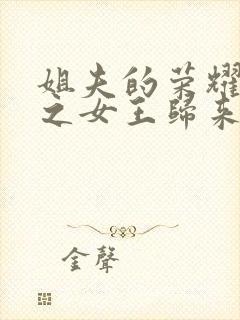 姐夫的荣耀
之女王歸来
金聲